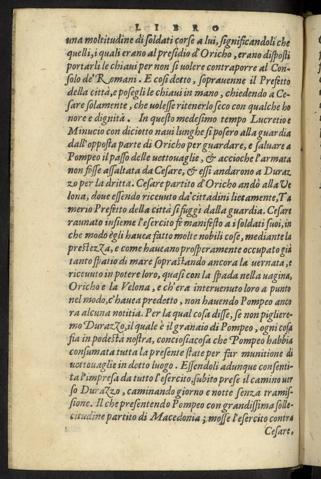 LIBRO
una moltitudine di soldati corse a lui, significandoli che
quelli, i quali erano al presidio d'Oricho, erano disposti
portarli le chiavi per non si volere contraporre al Con-
solo de' Romani. E cosi detto, sopravenne il Prefetto
della città, e posegli le chiavi in mano, chiedendo a Ce-
sare solamente, che volesse ritenerlo seco con qualche ho
nore e dignità. In questo medesimo tempo Lucretio e
Minucio con diciotto navi lunghe si posero alla guardia
dall'opposta parte di Oricho per guardare, e salvare a
Pompeo il passo delle vettovaglie, & accioche l'armata
non fosse assaltata da Cesare, & essi andarono a Duraz
zo per la dritta. Cesare partito d'Oricho andò alla Ve
lona, dove essendo ricevuto da' cittadini lietamente, T a
merio Prefetto della città si fuggì dalla guardia. Cesare
raunato insieme l'esercito fe manifesto a i soldati suoi, in
che modo egli haveva fatto molte nobili cose, mediante la
prestezza, e come haveano prosperamente occupato già
tanto spatio di mare soprastando ancora la vernata, e
ricevuto in potere loro, quasi con la spada nella vagina,
Oricho e la Velona, e ch'era intervenuto loro a punto
nel modo, c'havea predetto, non havendo Pompeo anco
ra alcuna notitia. Per la qual cosa disse, se non pigliere-
mo Durazzo, il quale è il granaio di Pompeo, ogni cosa
fia in podestà nostra, conciosiacosa che Pompeo habbia
consumata tutta la presente state per far munitione di
vettovaglie in detto luogo. Essendoli adunque consenti-
ta l'impresa da tutto l'esercito, subito prese il camino ver
so Durazzo, caminando giorno e notte senza tramis-
sione. Il che presentendo Pompeo con grandissima solle-
citudine partito di Macedonia; mosse l'esercito contra
Cesare,